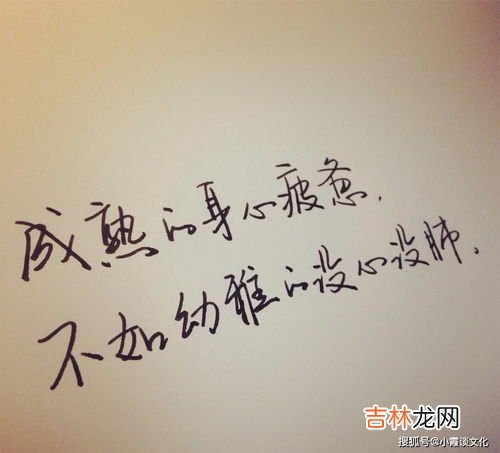 成熟的身心疲惫.
不如幼稚的没心没肺.
吉林龙网
搜狐号@小霞谈文化